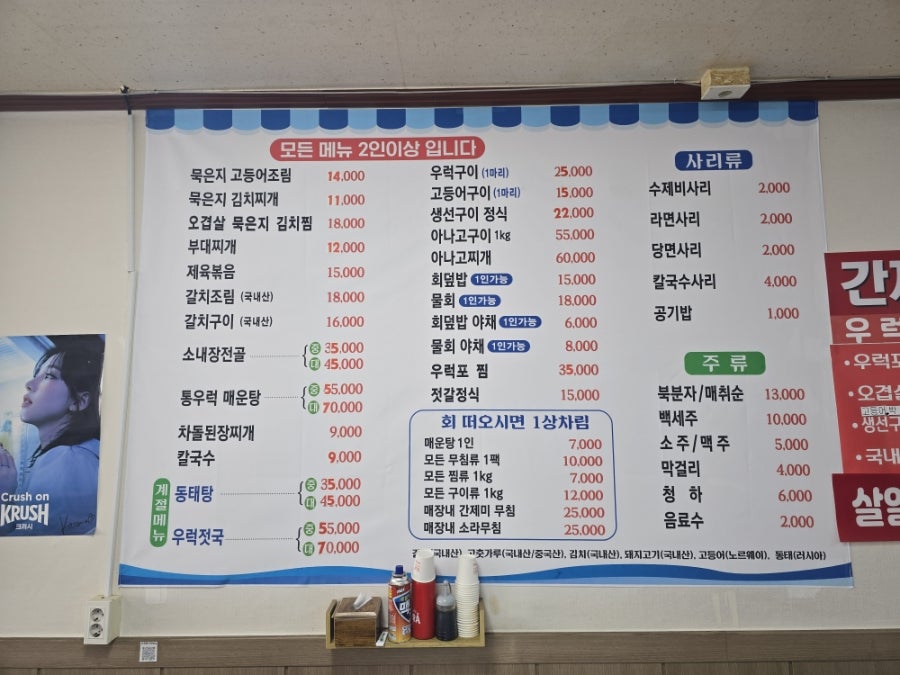 모든 메뉴 2인이상 입니다
묵은지 고등어조림 14,000
묵은지 김치찌개 11,000
오겹살 묵은지 김치찜 18,000
부대찌개 12,000
제육볶음 15,000
갈치조림 (국내산) 18,000
갈치구이 (국내산) 16,000
소내장전골 중 35,000
대 45,000
통우럭 매운탕 중 55,000
대 70,000
차돌된장찌개 9,000
칼국수 9,000
계절메뉴
동태탕 중 35,000
대 45,000
우럭젓국 중 55,000
대 70,000
우럭구이 (1마리) 25,000
고등어구이 (1마리) 15,000
생선구이 정식 22,000
아나고구이 1kg 55,000
아나고찌개 60,000
회덮밥 1인가능 15,000
물회 1인가능 18,000
회덮밥 야채 1인가능 6,000
물회 야채 1인가능 8,000
우럭포 찜 35,000
젓갈정식 15,000
회 떠오시면 1상차림
매운탕 1인 7,000
모든 무침류 1팩 10,000
모든 찜류 1kg 7,000
모든 구이류 1kg 12,000
매장내 간제미 무침 25,000
매장내 소라무침 25,000
사리류
수제비사리 2,000
라면사리 2,000
당면사리 2,000
칼국수사리 4,000
공기밥 1,000
주 류
북분자/매취순 13,000
백세주 10,000
소주/맥주 5,000
막걸리 4,000
청 하 6,000
음료수 2,000
고춧가루(국내산/중국산), 김치(국내산), 돼지고기(국내산), 고등어(노르웨이), 동태(러시아)
Crush on
KRUSH
크러시
우럭
•우럭포
•오겹살
•생선구
•국내